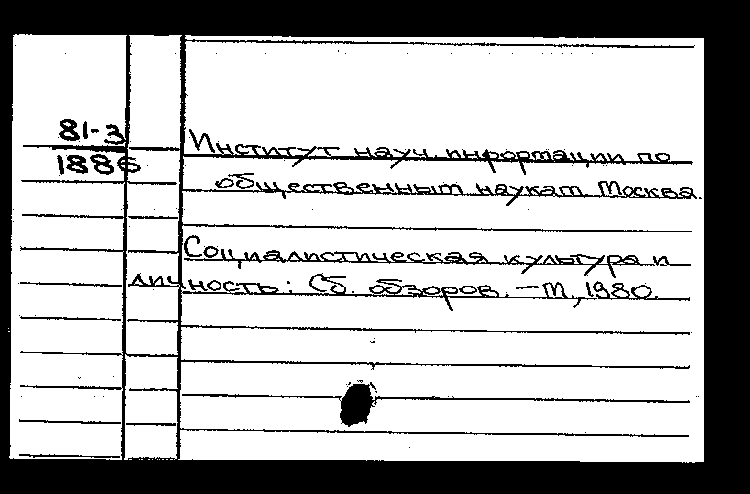 81-3
1886
Институт науч. информации по
общественным наукам. Москва.
Социалистическая культура и
личность: Сб. обзоров. — М., 1980.